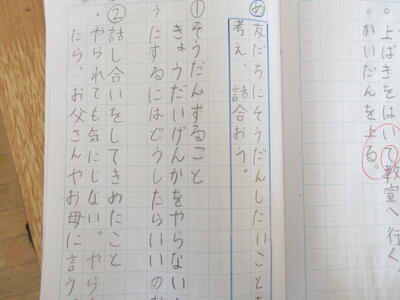 。上ばきをはいて教室へ行く。
。かいだんを上る。
め 友だちにそうだんしたいことを
考え、話合おう。
① そうだんすること
きょうだいげんかをやらないよ
うにするにはどうしたらいいのか
② 話し合いをしてきめたこと
・やられても気にしない。やら
たら、お父さんやお母に言う。